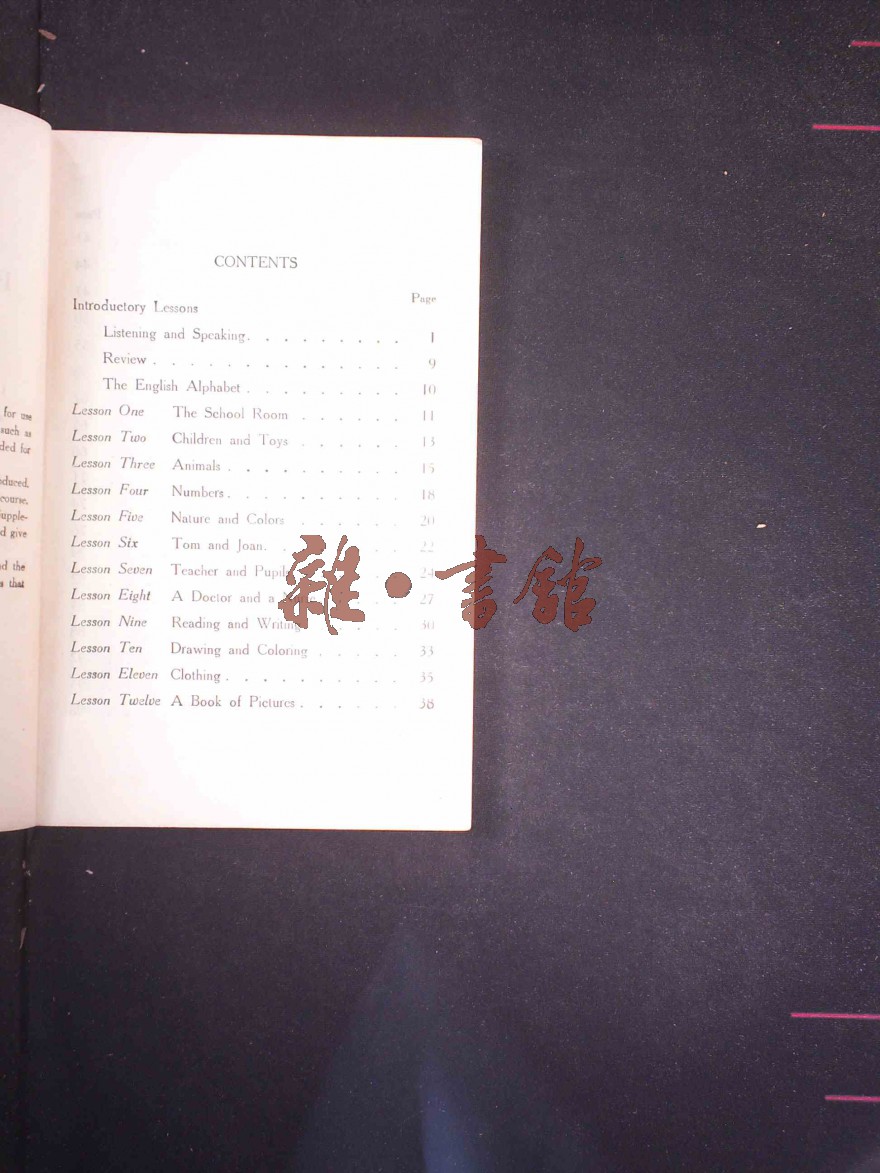 for use
such as
ded for
oduced,
course,
upple-
d give
d the
s that
CONTENTS
Page
Introductory Lessons
Listening and Speaking. . . . . . . . . . . 1
Review . . . . . . . . . . . . . . 9
The English Alphabet . . . . . . . . . 10
Lesson One The School Room . . . . . . 11
Lesson Two Children and Toys . . . . . . 13
Lesson Three Animals . . . . . . . . . . 15
Lesson Four Numbers . . . . . . . . . . 18
Lesson Five Nature and Colors . . . . . . 20
Lesson Six Tom and Joan. . . . . . . 22
Lesson Seven Teacher and Pupils . . . . 24
Lesson Eight A Doctor and a . . . . 27
Lesson Nine Reading and Writing . . . . 30
Lesson Ten Drawing and Coloring . . . . . 33
Lesson Eleven Clothing . . . . . . . . . . 35
Lesson Twelve A Book of Pictures . . . . . . 38
雜·書館